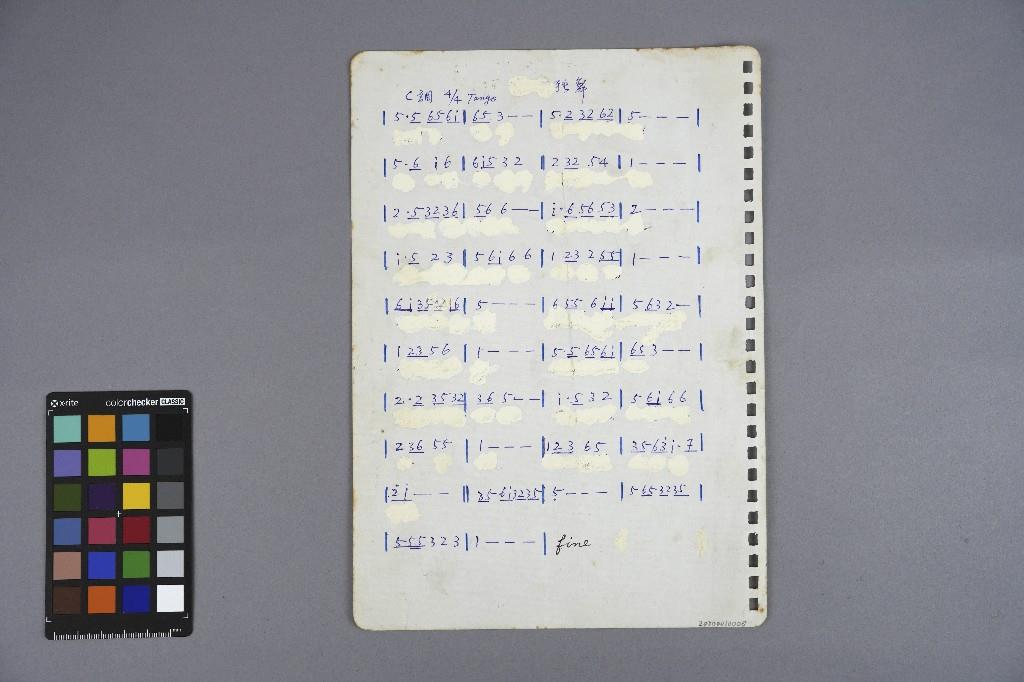 C調 4/4 Tango
| 5·5 656i | 65 3 — — | 5·2 32 62 | 5 — — — |
| 5·6 i6 | 6i5 3 2 | 2 32 54 | 1 — — — |
| 2·53236 | 56 6 — — | i·65653 | 2 — — — |
| i·5 2 3 | 5 6i 6 6 | 1 23 2 65 | 1 — — — |
| 5 — — — | 6 55 6 ii | 5 63 2 — |
| 1 23 5 6 | 1 — — — | 5·5 656i | 65 3 — — |
| 2·2 3532 | 3 6 5 — — | i·5 3 2 | 5 6i 6 6 |
| 2 36 55 | 1 — — — | 12 3 65 | 3563i·7 |
| 2i — — || 35 6i3235 | 5 — — — | 5 653235 |
| 555 3 2 3 | 1 — — — | fine
x-rite colorchecker CLASSIC